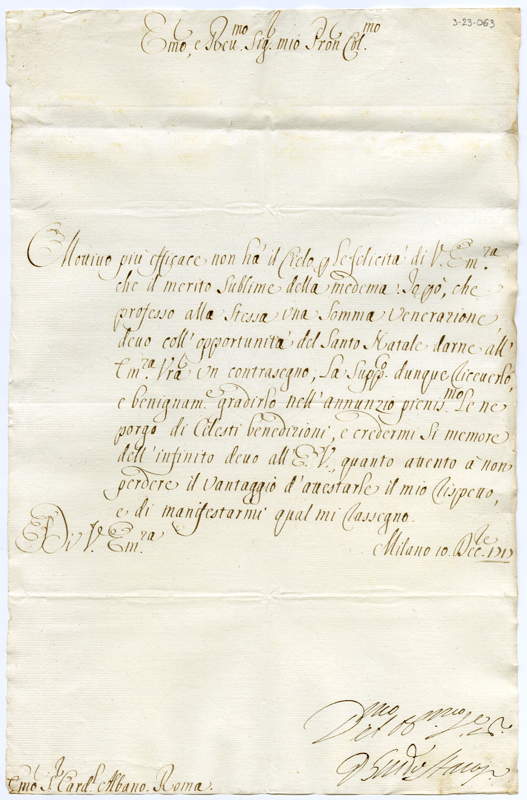 3-23-063
Emo, e Reu.mo Sig.r mio Pron Col.mo
Mottivo più efficace non hà il Cielo p le felicità di V. Em.ra
che il merito sublime della medema. Io pò, che
professo alla stessa una somma venerazione
devo coll' opportunità del Santo Natale darne all'
Em.ra Vra un contrasegno, La Supp.co dunque riceverlo,
e benignam.e gradirlo nell' annunzio pienis.mo Le ne
porgo di Celesti benedizioni, e credermi si memore
dell' infinito devo all' E. V., quanto attento à non
perdere il vantaggio d' attestarle il mio rispetto,
e di manifestarmi qual mi rassegno.
Di V. Em.ra
Milano 10. Dec.re 1717
Emo Sr Card.l Albano. Roma.